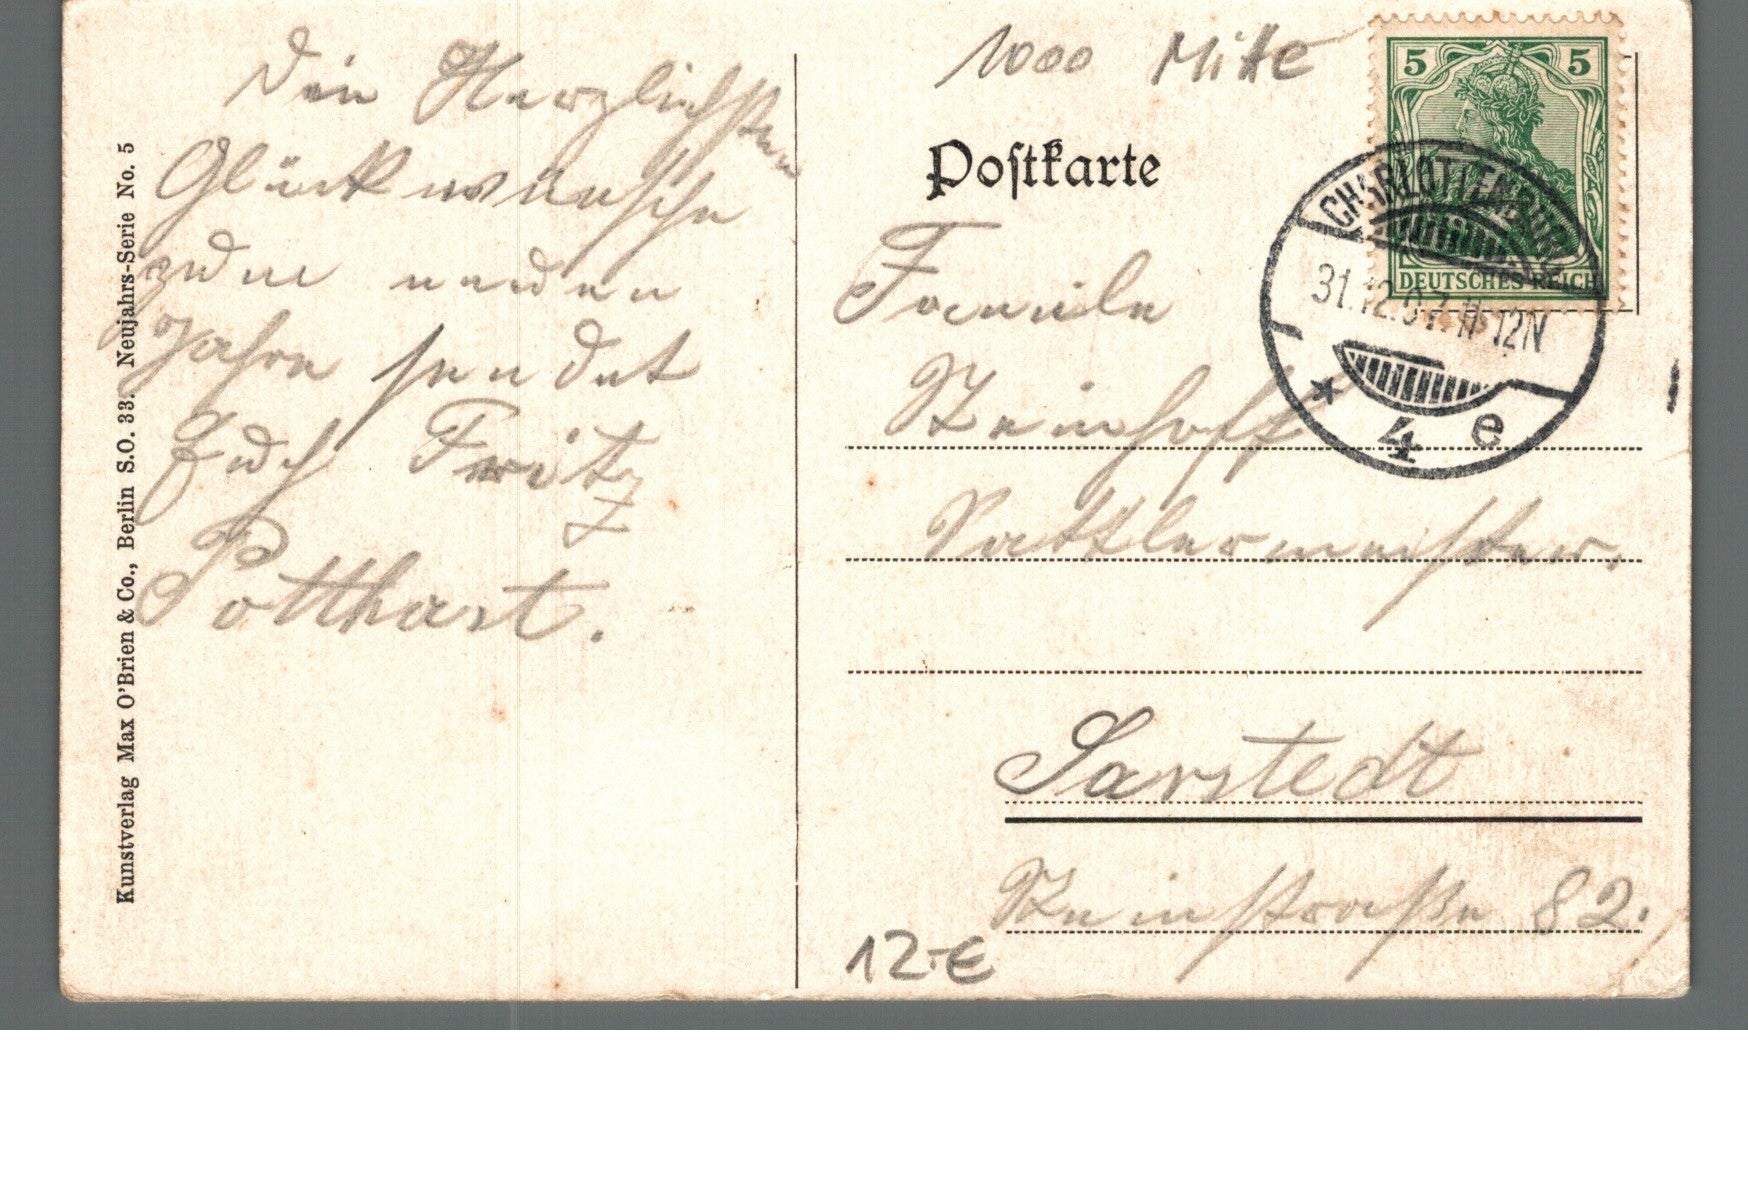 Die Herzlichsten
Glückwünsche
zum neuen
Jahre sendet
Euch Fritz
Potthast.
Kunstverlag Max O'Brien & Co., Berlin S.O. 33. Neujahrs-Serie No. 5
1000 Mitte
Postkarte
5 5
DEUTSCHES REICH
CHARLOTTENBURG
31.12.07 11-12N
* 4 e
Familie
Steinhoff
Sattlermeister.
Sarstedt
Steinstraße 82.
12.-€